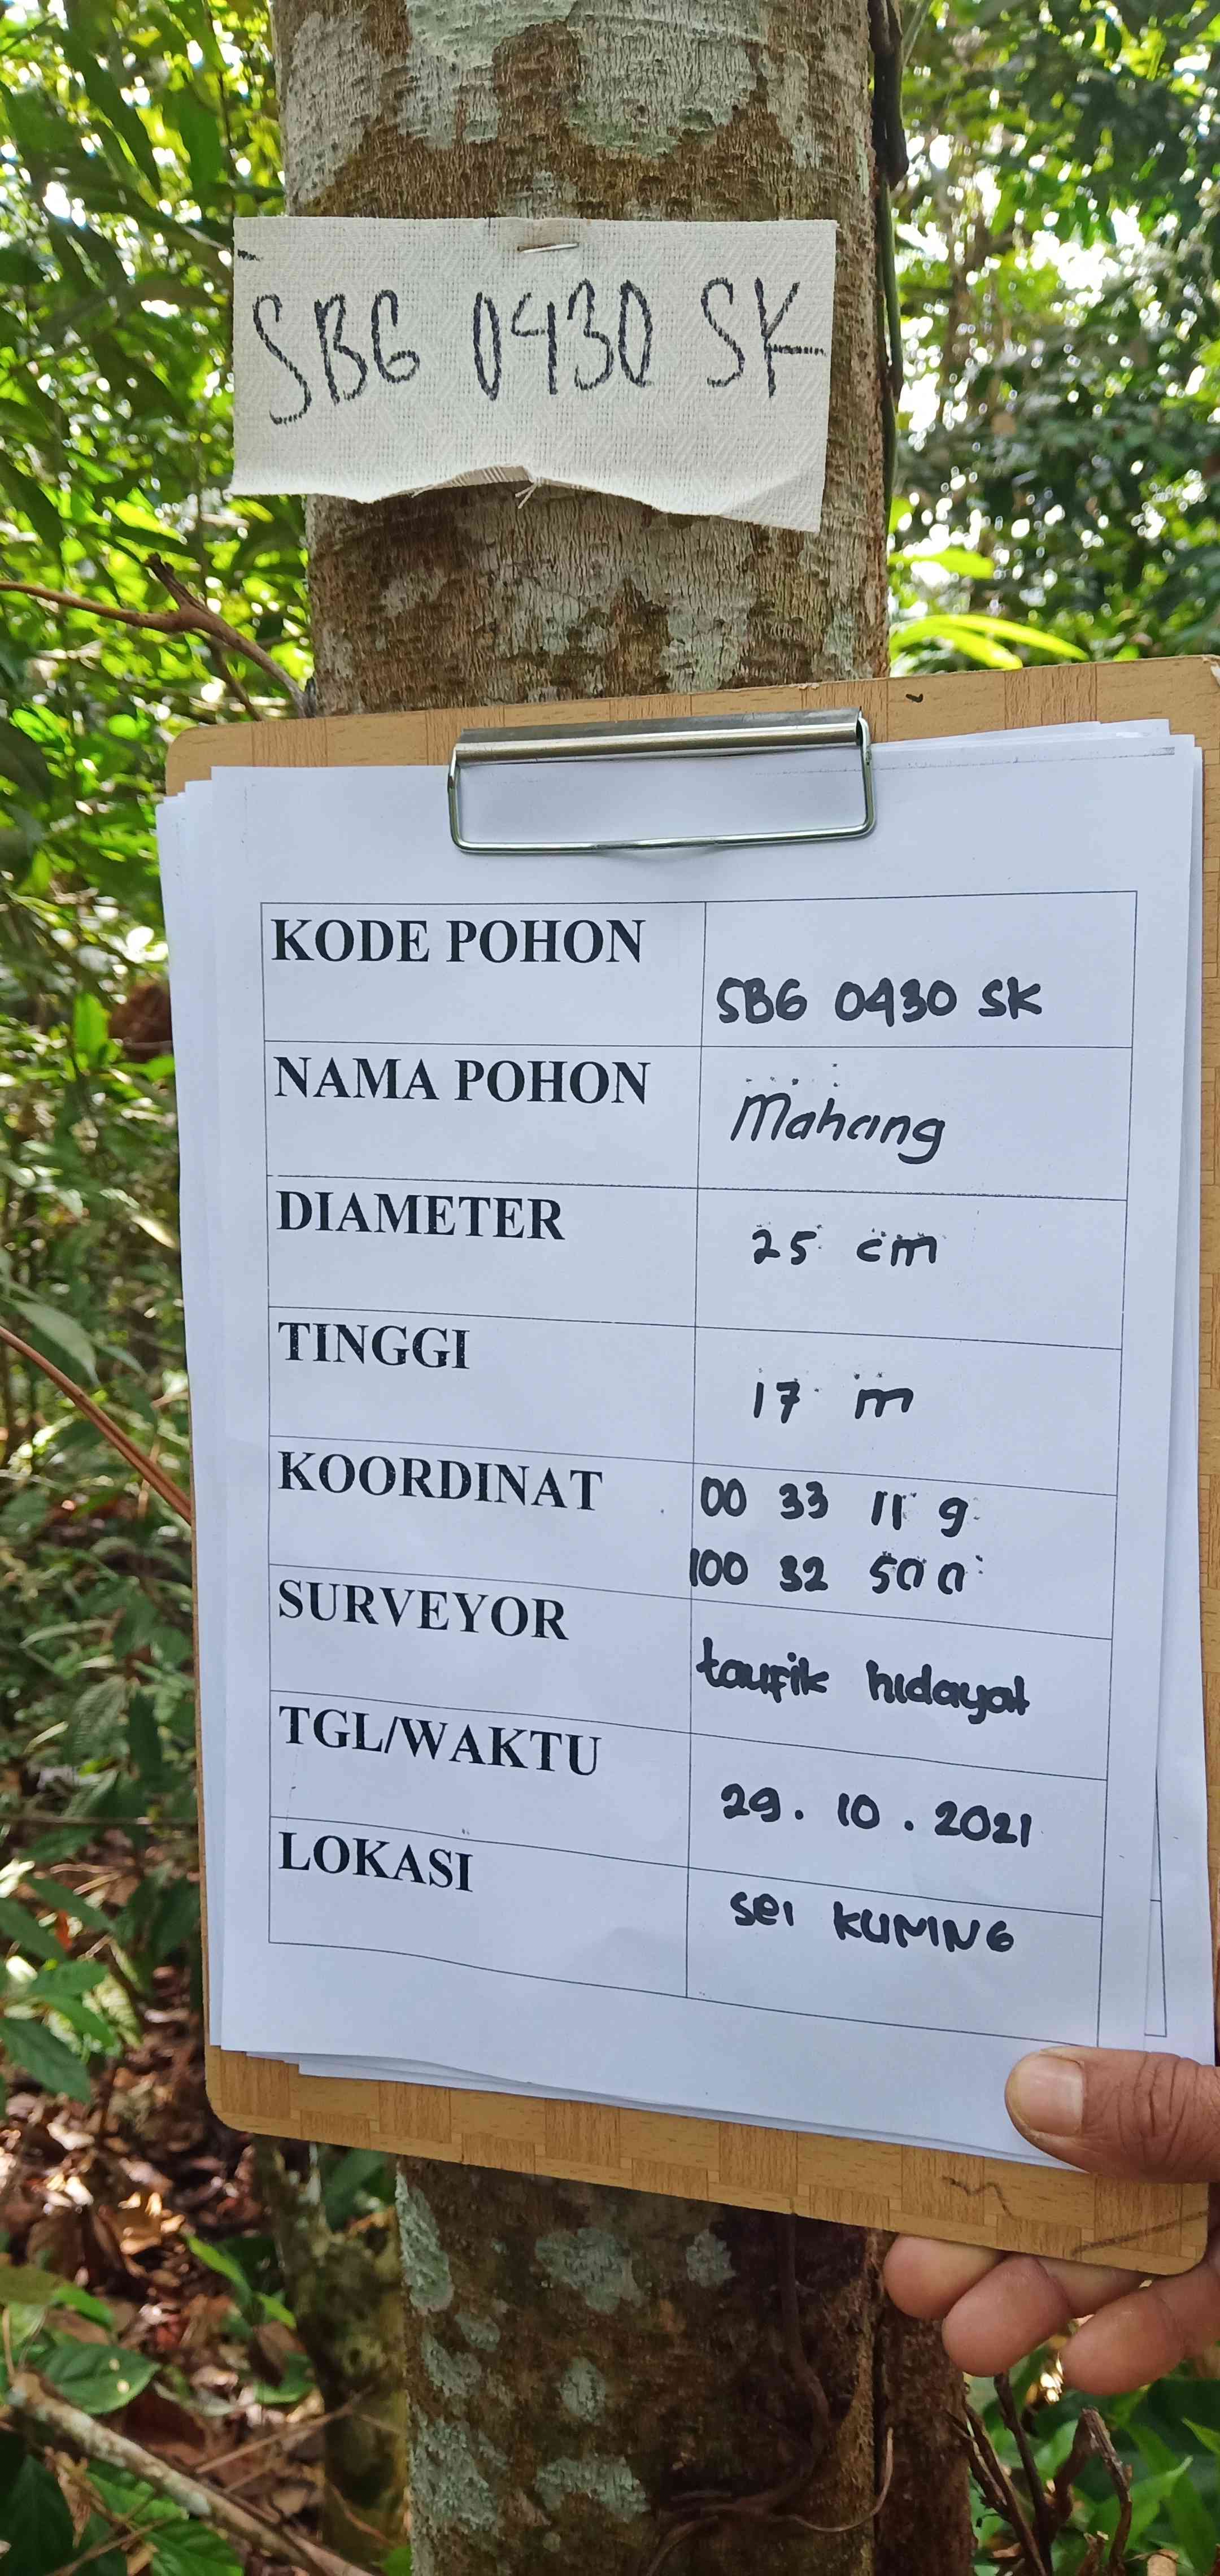 SBG 0430 SK
KODE POHON
SBG 0430 SK
NAMA POHON
Mahang
DIAMETER
25 cm
TINGGI
17 m
KOORDINAT
00 33 11 9
100 32 500
SURVEYOR
taufik hidayat
TGL/WAKTU
29. 10. 2021
LOKASI
sei KUNING